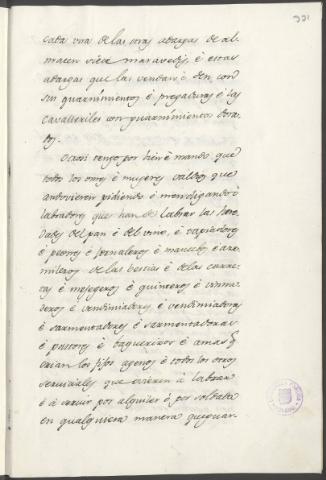 cada vna de las otras adargas de al-
macen siete maravedis, è estas
adargas que las vendan è den con
sus guarnimientos è pregaduras è las
cavalleriles con guarnimientos dora-
dos.
Otrosi tengo por bien è mando que
todos los omes è mugeres valdios que
andovieren pidiendo è mendigando è
labradores que han de labrar las here-
dades del pan è del vino, è
è peones è jornaleros è mancebos è aze-
mileros de las bestias è de las carre-
tas è mesegeros è quinteros è vinna-
deros è vendimiadores è vendimiadoras
è sarmentadores è sarmentadoras
è pastores è baquerizos è amas q.
crian los fijos agenos è todos los otros
serviciales que ovieren à labrar
è à servir por alquiler ò por soldada
en qualquiera manera que guar-